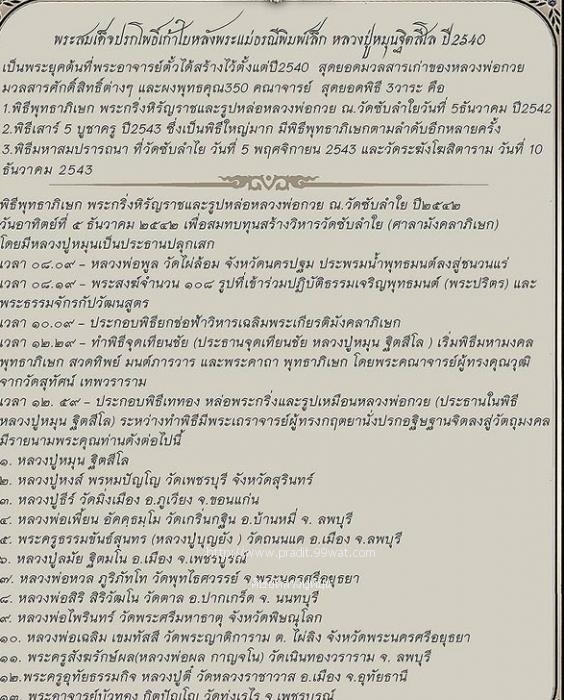 พระสมเด็จปรกโพธิ์เก้าใบหลังพระแม่ธรณีพิมพ์เล็ก หลวงปู่หมุนฐิตสีโล ปี2540
เป็นพระยุคต้นที่พระอาจารย์ตั้วได้สร้างไว้ตั้งแต่ปี2540 สุดยอดมวลสารเก่าของหลวงพ่อกวย
มวลสารศักดิ์สิทธิ์ต่างๆ และผงพุทธคุณ350 คณาจารย์ สุดยอดพิธี 3วาระ คือ
1.พิธีพุทธาภิเษก พระกริ่งหิรัญราชและรูปหล่อหลวงพ่อกวย ณ.วัดซับลำใยวันที่ 5ธันวาคม ปี2542
2.พิธีเสาร์ 5 บูชาครู ปี2543 ซึ่งเป็นพิธีใหญ่มาก มีพิธีพุทธาภิเษกตามลำดับอีกหลายครั้ง
3.พิธีมหาสมปรารถนา ที่วัดซับลำไย วันที่ 5 พฤศจิกายน 2543 และวัดระฆังโฆสิตาราม วันที่ 10
ธันวาคม 2543
พิธีพุทธาภิเษก พระกริ่งหิรัญราชและรูปหล่อหลวงพ่อกวย ณ.วัดซับลำใย ปี๒๕๔๒
วันอาทิตย์ที่ ๕ ธันวาคม ๒๕๔๒ เพื่อสมทบทุนสร้างวิหารวัดซับลำใย (ศาลามังคลาภิเษก)
โดยมีหลวงปู่หมุนเป็นประธานปลุกเสก
เวลา ๐๘.๐๙ – หลวงพ่อพูล วัดไผ่ล้อม จังหวัดนครปฐม ประพรมน้ำพุทธมนต์ลงสู่ชนวนแร่
เวลา ๐๘.๑๙ – พระสงฆ์จำนวน ๑๐๘ รูปที่เข้าร่วมปฏิบัติธรรมเจริญพุทธมนต์ (พระปริตร) และ
พระธรรมจักรกัปวัฒนสูตร
เวลา ๑๐.๐๙ – ประกอบพิธียกช่อฟ้าวิหารเฉลิมพระเกียรติมังคลาภิเษก
เวลา ๑๒.๒๙ – ทำพิธีจุดเทียนชัย (ประธานจุดเทียนชัย หลวงปู่หมุน ฐิตสีโล ) เริ่มพิธีมหามงคล
พุทธาภิเษก สวดทิพย์ มนต์ภาวาร และพระคาถา พุทธาภิเษก โดยพระคณาจารย์ผู้ทรงคุณวุฒิ
จากวัดสุทัศน์ เทพวราราม
เวลา ๑๒. ๕๙ – ประกอบพิธีเททอง หล่อพระกริ่งและรูปเหมือนหลวงพ่อกวย (ประธานในพิธี
หลวงปู่หมุน ฐิตสีโล) ระหว่างทำพิธีมีพระเถราจารย์ผู้ทรงกฤตยานั่งปรกอฐิษฐานจิตลงสู่วัตถุมงคล
มีรายนามพระคุณท่านดังต่อไปนี้
๑. หลวงปู่หมุน ฐิตสีโล
๒. หลวงปู่หงส์ พรหมปัญโญ วัดเพชรบุรี จังหวัดสุรินทร์
๓. หลวงปู่ธีร์ วัดมิ่งเมือง อ.ภูเวียง จ.ขอนแก่น
๔. หลวงพ่อเพี้ยน อัคคธมฺโม วัดเกริ่นกฐิน อ.บ้านหมี่ จ. ลพบุรี
๕. พระครูธรรมขันธ์สุนทร (หลวงปู่บุญยัง ) วัดถนนแค อ.เมือง จ.ลพบุรี
๖. หลวงปู่ลมัย ฐิตมโน อ.เมือง จ.เพชรบูรณ์
https://www.pradit.99wat.com
๗. หลวงพ่อหวล ภูริภัทโท วัดพุทไธศวรรย์ จ.พระนครศรีอยุธยา
๘. หลวงพ่อสิริ สิริวัฒโน วัดตาล อ.ปากเกร็ด จ. นนทบุรี
๙. หลวงพ่อไพรินทร์ วัดพระศรีมหาธาตุ จังหวัดพิษณุโลก
๑๐. หลวงพ่อเฉลิม เขมทัสสี วัดพระญาติการาม ต. ไผ่ลิง จังหวัดพระนครศรีอยุธยา
๑๑. พระครูสังฆรักษ์ผล(หลวงพ่อผล กาญจโน) วัดเนินทองวราราม จ. ลพบุรี
๑๒.พระครูอุทัยธรรมกิจ หลวงปู่ตี๋ วัดหลวงราชาวาส อ.เมือง จ.อุทัยธานี
๑๓. พระอาจารย์บัวทอง กิตปัญโญ วัดทุ่งเรไร จ.เพชรบูรณ์